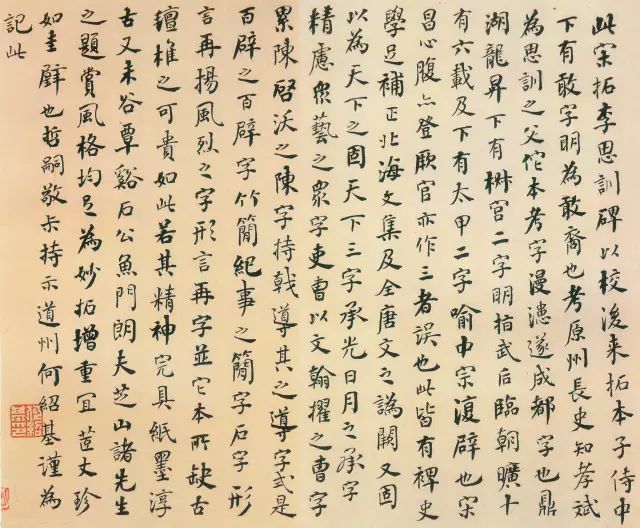 此宋拓李思訓碑以校後来拓本子侍中
下有敢字明為敢裔也考原州長史知孝斌
為思訓之父佗本考字漫漶遂成都字也鼎
湖龍昇下有樹宫二字明指武后臨朝曠十
有六載及下有太甲二字喻中宗復辟也宋
昌心腹亦登厥官亦作三者误也此皆有裨史
學足補正北海文集及全唐文之譌闕又固
以為天下之固天下三字承光日月之承字
精慮眾藝之眾字吏曹以文翰擢之曹字
累陳啓沃之陳字持戟導其之導字式是
百辟之百辟字竹簡紀事之簡字石字形
言再揚風烈之字形言再字並它本所缺古
氊椎之可貴如此若其精神完具紙墨淳
古又未谷覃谿石公魚門朗夫芝山諸先生
之題賞風格均足為妙拓增重宜荁丈珍
如圭璧也哲嗣敬㞢持示道州何紹基謹為
記此